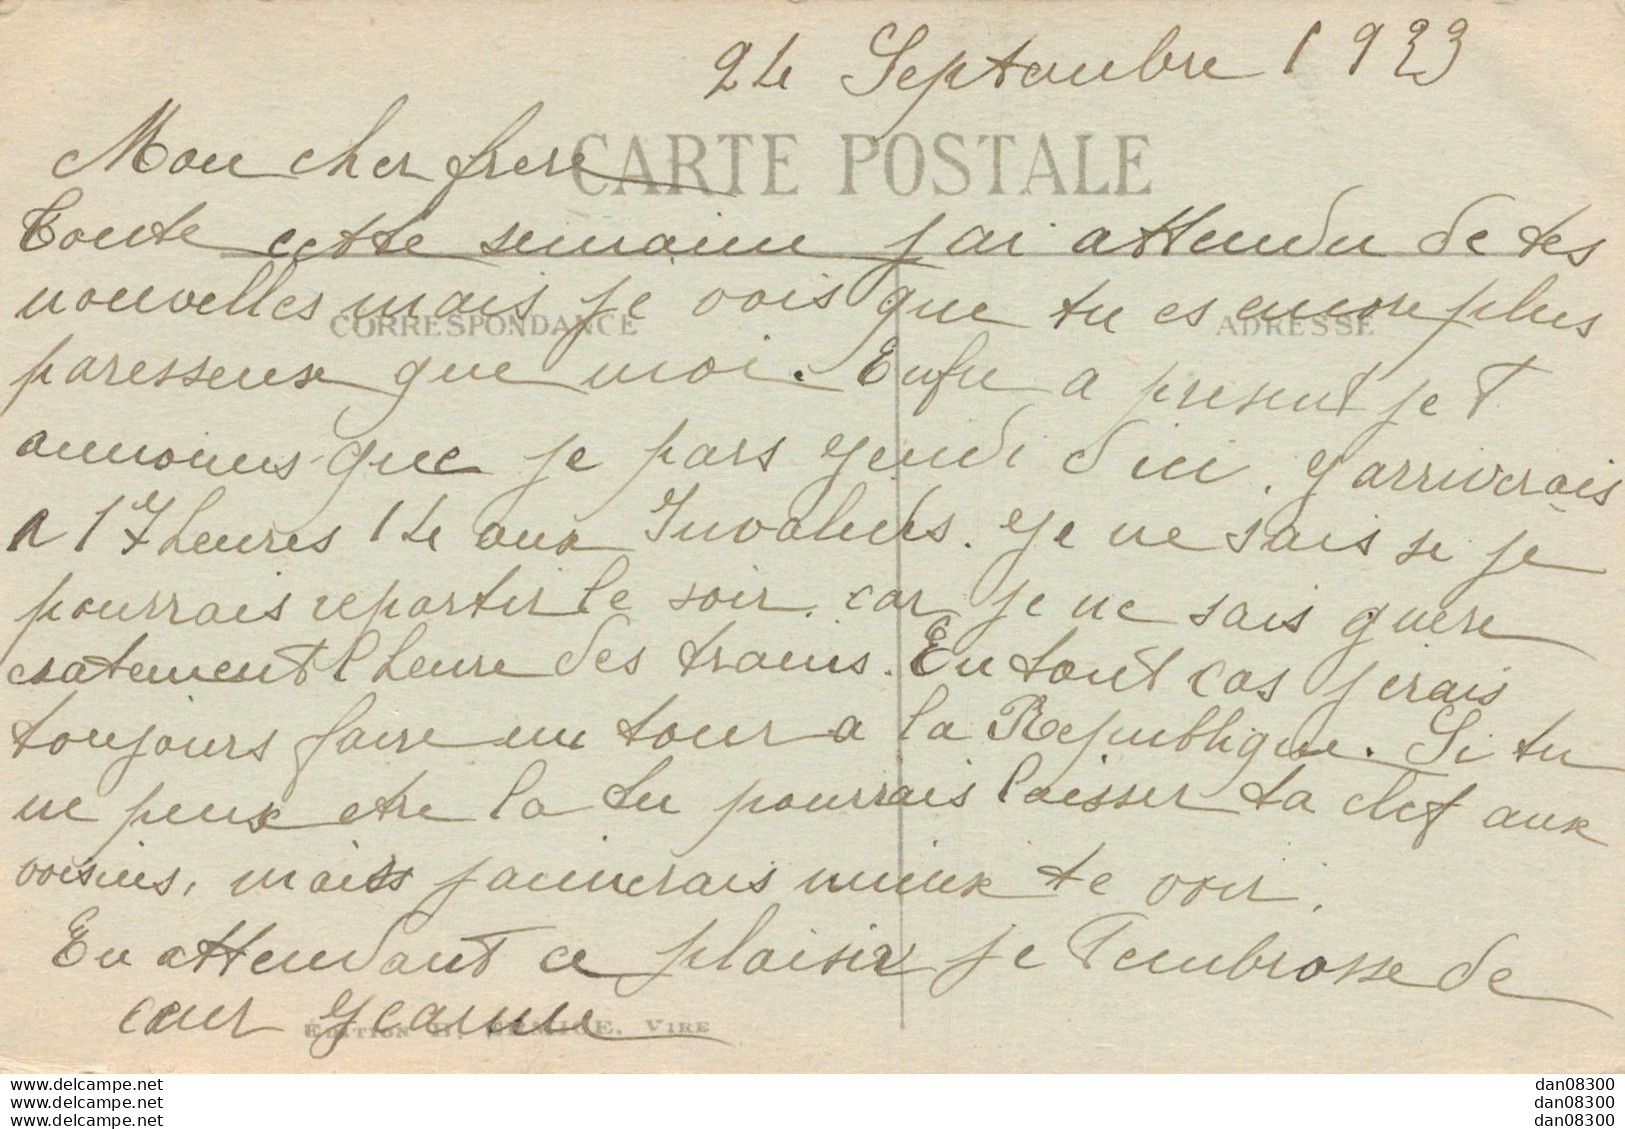 24 Septembre 1923
CARTE POSTALE
Mon cher frere
Toute cette semaine j'ai attendu de tes
nouvelles mais je vois que tu es encore plus
CORRESPONDANCE
ADRESSE
paresseux que moi. Enfin a present je t
annonces que je pars Jeudi d'ici. J arriverais
A 17 heures 14 aux Invalides. Je ne sais si je
pourrais repartir le soir. car je ne sais guere
exatement l heure des trains. En tout cas j irais
toujours faire un tour a la Republique. Si tu
ne peux etre la tu pourrais laisser ta clef aux
voisins, mais j aimerais mieux te voir.
En attendant ce plaisir je t embrasse de
cœur Jeanne
EDITION VIRE
www.delcampe.net
www.delcampe.net
www.delcampe.net
dan08300
dan08300
dan08300